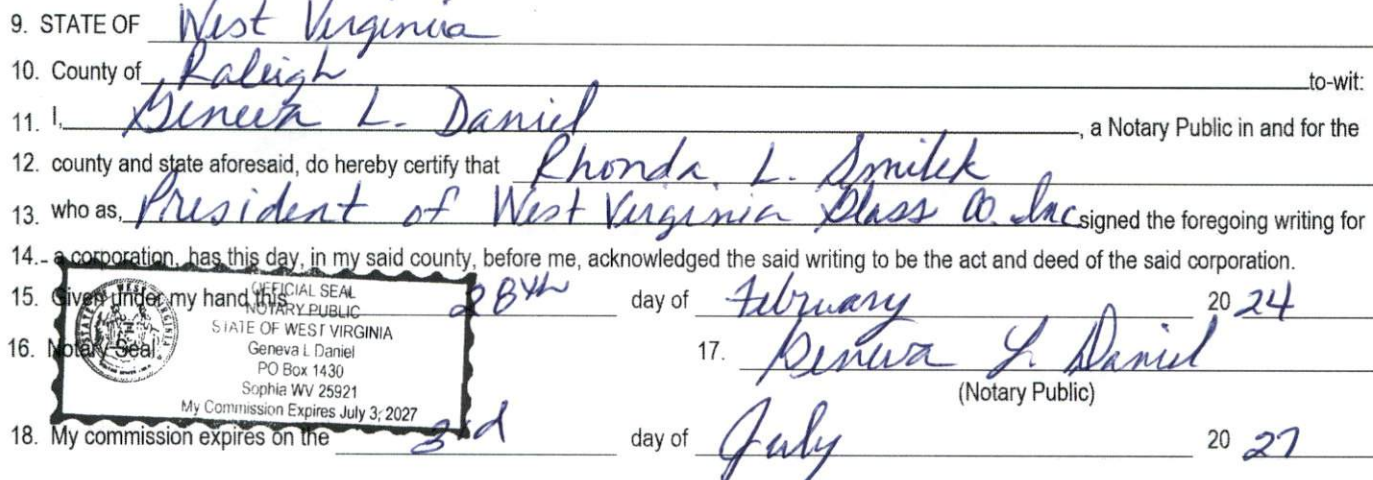 9. STATE OF West Virginia
10. County of Raleigh to-wit:
11. I, Geneva L. Daniel, a Notary Public in and for the
12. county and state aforesaid, do hereby certify that Rhonda L. Smilek
13. who as, President of West Virginia Glass Co. Inc signed the foregoing writing for
14. a corporation, has this day, in my said county, before me, acknowledged the said writing to be the act and deed of the said corporation.
15. Given under my hand this 28th day of February 20 24
16. Notary Seal 17. Geneva L. Daniel
(Notary Public)
OFFICIAL SEAL
NOTARY PUBLIC
STATE OF WEST VIRGINIA
Geneva L Daniel
PO Box 1430
Sophia WV 25921
My Commission Expires July 3, 2027
18. My commission expires on the 3rd day of July 20 27